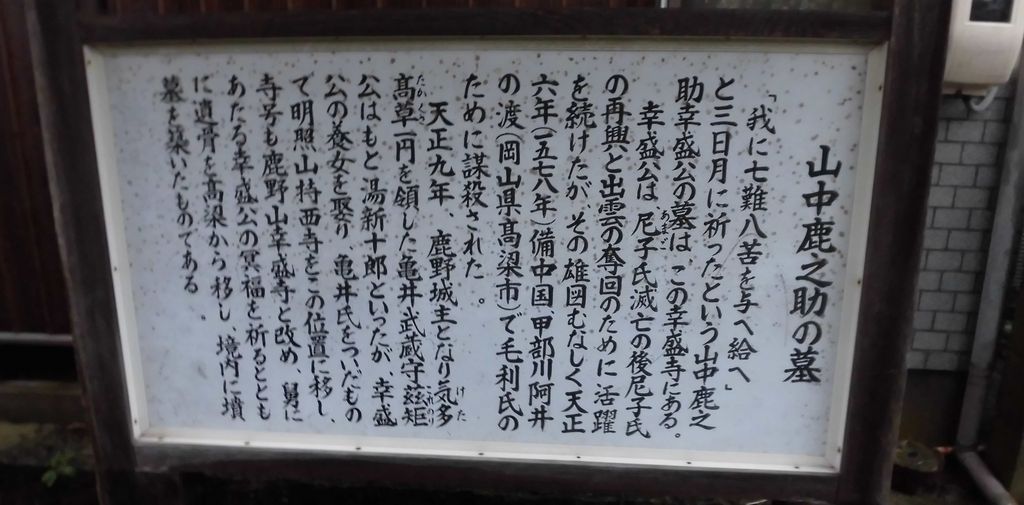 山中鹿之助の墓
「我に七難八苦を与へ給へ」
と三日月に祈ったという山中鹿之
助幸盛公の墓は、この幸盛寺にある。
幸盛公は、尼子氏滅亡の後尼子氏
の再興と出雲の奪回のために活躍
を続けたが、その雄図むなしく天正
六年(一五七八年)備中国甲部川阿井
の渡(岡山県高梁市)で毛利氏の
ために謀殺された。
天正九年、鹿野城主となり気多
高草一円を領した亀井武蔵守玆矩
公はもと湯新十郎といったが、幸盛
公の養女を娶り、亀井氏をついだもの
で明照山持西寺をこの位置に移し、
寺号も鹿野山幸盛寺と改め、舅に
あたる幸盛公の冥福を祈るととも
に遺骨を高梁から移し、境内に墳
墓を築いたものである。